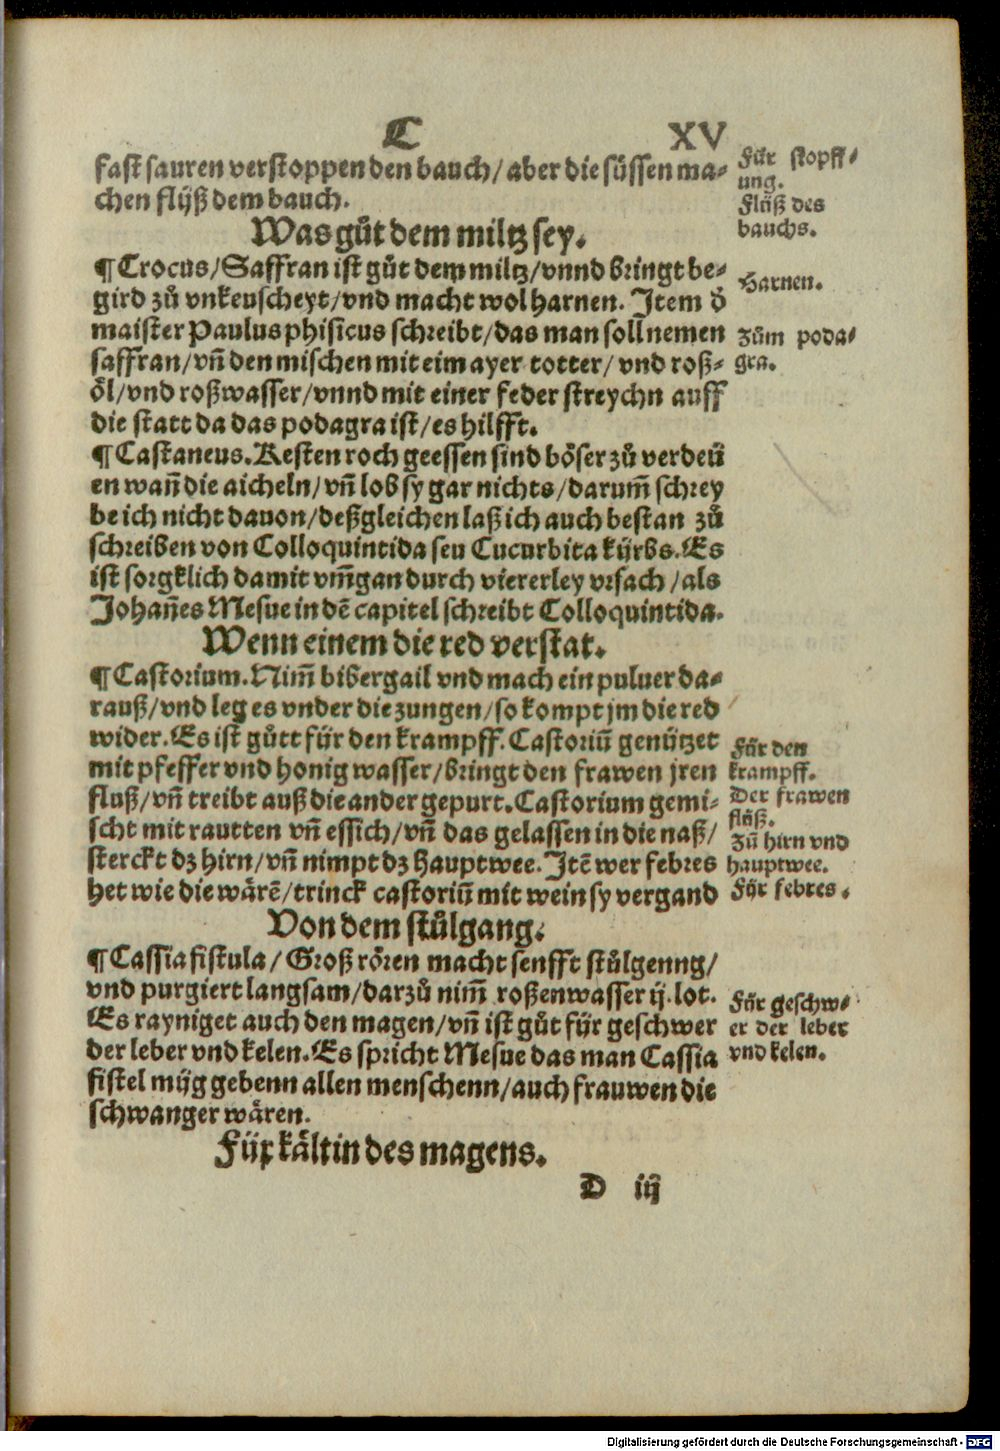 C XV
fast sauren verstoppen den bauch/ aber die süssen ma⸗
chen flüß dem bauch.
Für stopff⸗
ung.
Flüß des
bauchs.
Was gůt dem miltz sey.
¶ Crocus/ Saffran ist gůt dem miltz/ vnnd bringt be⸗
gird zů vnkeuscheyt/ vnd macht wol harnen. Item d̕
maister Paulus phisicus schreibt/ das man soll nemen
saffran/ vñ den mischen mit eim ayer totter/ vnd roß⸗
öl/ vnd roßwasser/ vnnd mit einer feder streychn auff
die statt da das podagra ist/ es hilfft.
Harnen.
Zům poda⸗
gra.
¶ Castaneus. Kesten roch geessen sind böser zů verdeü
en wañ die aicheln/ vñ lob sy gar nichts/ darum̃ schrey
be ich nicht dauon/ deßgleichen laß ich auch bestan zů
schreiben von Colloquintida seu Cucurbita kürbs. Es
ist sorgklich damit vm̃gan durch viererley vrsach/ als
Johañes Mesue in dẽ capitel schreibt Colloquintida.
Wenn einem die red verstat.
¶ Castorium. Nim̃ bibergail vnd mach ein puluer da⸗
rauß/ vnd leg es vnder die zungen/ so kompt jm die red
wider. Es ist gůtt für den krampff. Castoriũ genützet
mit pfeffer vnd honig wasser/ bringt den frawen jren
fluß/ vñ treibt auß die ander gepurt. Castorium gemi⸗
scht mit rautten vñ essich/ vñ das gelassen in die naß/
sterckt dz hirn/ vñ nimpt dz hauptwee. Itẽ wer febres
het wie die wärẽ/ trinck castoriũ mit wein sy vergand
Für den
krampff.
Der frawen
flüß.
Zů hirn vnd
hauptwee.
Für febres.
Von dem stůlgang.
¶ Cassia fistula/ Groß rören macht senfft stůlgenng/
vnd purgiert langsam/ darzů nim̃ roßenwasser ij. lot.
Es rayniget auch den magen/ vñ ist gůt für geschwer
der leber vnd kelen. Es spricht Mesue das man Cassia
fistel müg gebenn allen menschenn/ auch frauwen die
schwanger wären.
Für geschw⸗
er der leber
vnd kelen.
Für kältin des magens.
D iij
Digitalisierung gefördert durch die Deutsche Forschungsgemeinschaft - DFG